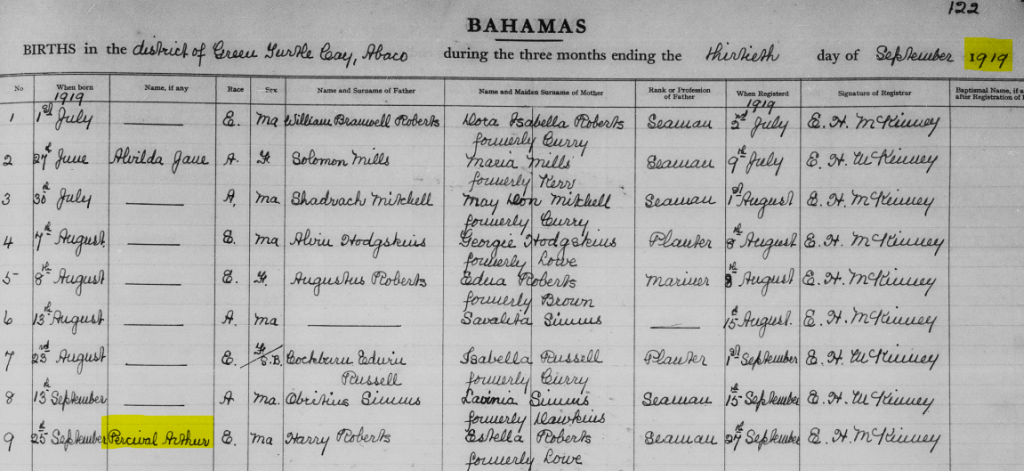 122
BAHAMAS
BIRTHS in the district of Green Turtle Cay, Abaco during the three months ending the thirtieth day of September 1919
No When born Name, if any Race Sex Name and Surname of Father Name and Maiden Surname of Mother Rank or Profession of Father When Registered Signature of Registrar Baptismal Name, if a
after Registration of
1919 1919
1 1st July — E. Ma William Bramwell Roberts Dora Isabella Roberts Seaman 2nd July E. H. McKinney
formerly Curry
2 27th June Alvilda Jane A. F. Solomon Mills Maria Mills Seaman 9th July E. H. McKinney
formerly Kerr
3 30th July — A. Ma Shadrach Mitchell May Don Mitchell Seaman 1st August E. H. McKinney
formerly Curry
4 7th August — E. Ma Alvin Hodgskins Georgie Hodgskins Planter 8th August E. H. McKinney
formerly Lowe
5 8th August — E. F. Augustus Roberts Edna Roberts Mariner 8th August E. H. McKinney
formerly Brown
6 13th August — A. Ma — Savalita Simms — 15th August. E. H. McKinney
7 23rd August — E. F/S.B. Cockburn Edwin Isabella Russell Planter 1st September E. H. McKinney
Russell formerly Curry
8 13th September — A Ma. Simms Lavinia Simms Seaman 15th September E. H. McKinney
formerly Dawkins
9 25th September Percival Arthur E. Ma Harry Roberts Estella Roberts Seaman 27th September E. H. McKinney
formerly Lowe